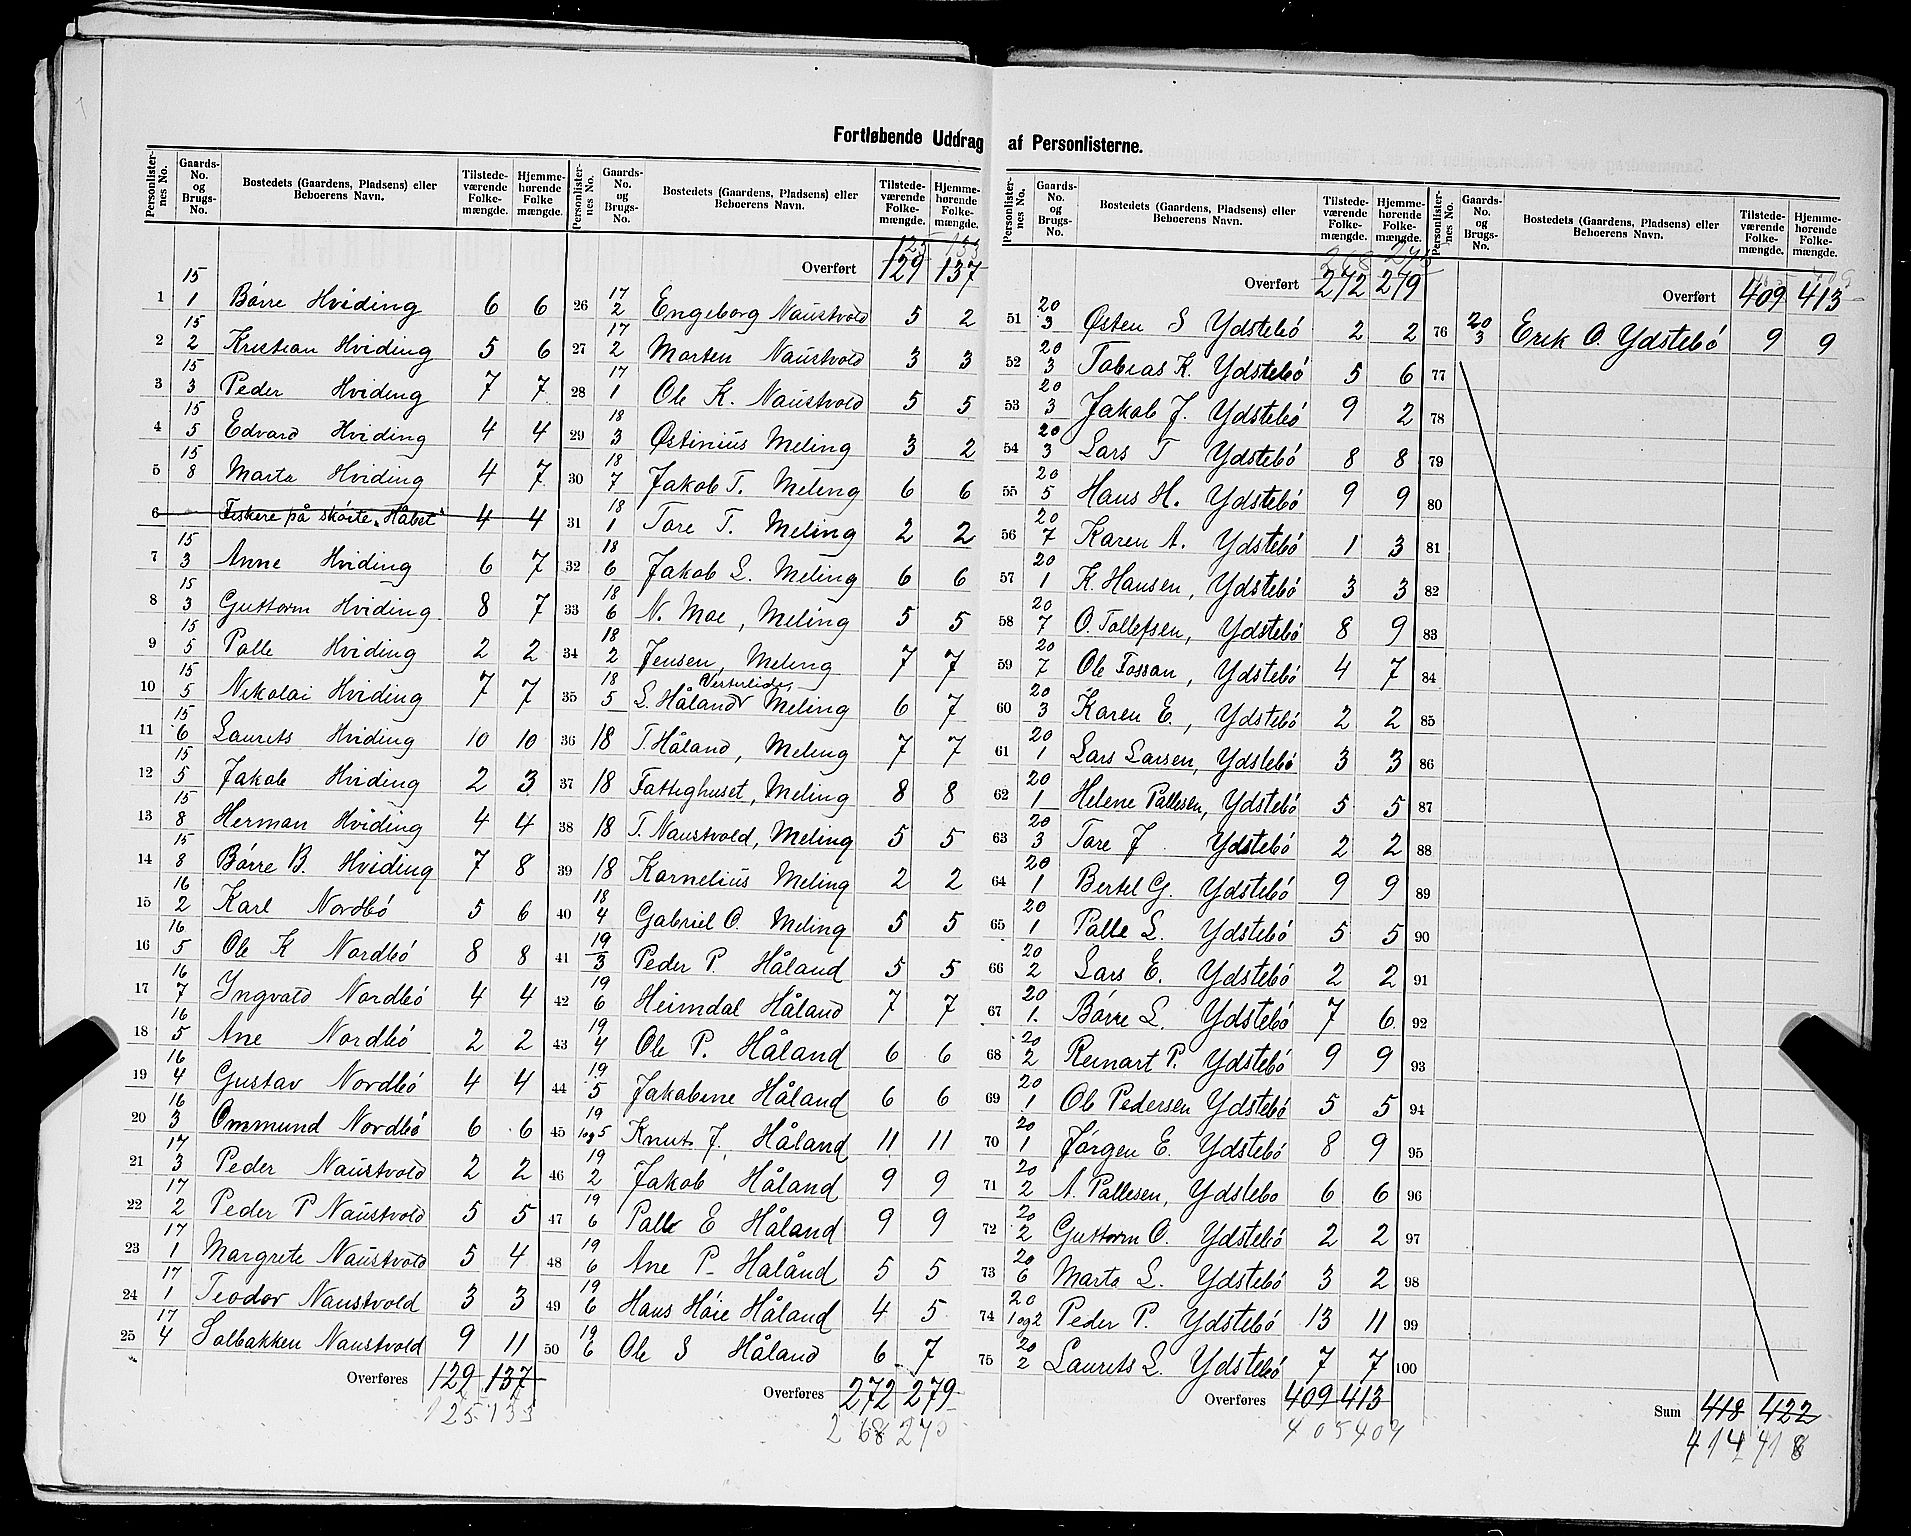 Fortløbende Uddrag af Personlisterne.
Personlisternes No. | Gaards-No. og Brugs-No. | Bostedets (Gaardens, Pladsens) eller Beboerens Navn. | Tilstedeværende Folkemængde. | Hjemmehørende Folkemængde.
1 | 15 1 | Börre Hviding | 6 | 6
2 | 15 2 | Kristian Hviding | 5 | 6
3 | 15 3 | Peder Hviding | 7 | 7
4 | 15 5 | Edvard Hviding | 4 | 4
5 | 15 8 | Marta Hviding | 4 | 7
6 | Fiskere på sköite „Håbet“ | 4 | 4
7 | 15 3 | Anne Hviding | 6 | 7
8 | 15 3 | Guttorm Hviding | 8 | 7
9 | 15 5 | Palle Hviding | 2 | 2
10 | 15 5 | Nikolai Hviding | 7 | 7
11 | 15 6 | Laurets Hviding | 10 | 10
12 | 15 5 | Jakob Hviding | 2 | 3
13 | 15 8 | Herman Hviding | 4 | 4
14 | 15 8 | Börre B. Hviding | 7 | 8
15 | 16 2 | Karl Nordbö | 5 | 6
16 | 16 5 | Ole K Nordbö | 8 | 8
17 | 16 7 | Ingvald Nordbö | 4 | 4
18 | 16 5 | Ane Nordbö | 2 | 2
19 | 16 4 | Gustav Nordbö | 4 | 4
20 | 16 3 | Ommund Nordbö | 6 | 6
21 | 17 3 | Peder Naustvold | 2 | 2
22 | 17 2 | Peder P Naustvold | 5 | 5
23 | 17 1 | Margrete Naustvold | 5 | 4
24 | 17 1 | Teodor Naustvold | 3 | 3
25 | 17 4 | Solbakken Naustvold | 9 | 11
Overføres | 129 | 137
125 133
Personlisternes No. | Gaards-No. og Brugs-No. | Bostedets (Gaardens, Pladsens) eller Beboerens Navn. | Tilstedeværende Folkemængde. | Hjemmehørende Folkemængde.
125 133
Overført | 129 | 137
26 | 17 2 | Engeborg Naustvold | 5 | 2
27 | 17 2 | Morten Naustvold | 3 | 3
28 | 17 1 | Ole K. Naustvold | 5 | 5
29 | 18 3 | Østinius Meling | 3 | 2
30 | 18 7 | Jakob T. Meling | 6 | 6
31 | 18 1 | Tore T. Meling | 2 | 2
32 | 18 6 | Jakob L. Meling | 6 | 6
33 | 18 6 | N. Moe, Meling | 5 | 5
34 | 18 2 | Jensen, Meling | 7 | 7
35 | 18 5 | L. Håland Vesterlide, Meling | 6 | 7
36 | 18 | T. Håland, Meling | 7 | 7
37 | 18 | Fattighuset, Meling | 8 | 8
38 | 18 | T. Naustvold, Meling | 5 | 5
39 | 18 | Kornelius Meling | 2 | 2
40 | 18 4 | Gabriel O. Meling | 5 | 5
41 | 19 3 | Peder P. Håland | 5 | 5
42 | 19 6 | Heimdal Håland | 7 | 7
43 | 19 4 | Ole P. Håland | 6 | 6
44 | 19 5 | Jakobine Håland | 6 | 6
45 | 19 1og5 | Knut J. Håland | 11 | 11
46 | 19 2 | Jakob Håland | 9 | 9
47 | 19 6 | Palle E Håland | 9 | 9
48 | 19 6 | Ane P. Håland | 5 | 5
49 | 19 6 | Hans Höie Håland | 4 | 5
50 | 19 6 | Ole S Håland | 6 | 7
Overføres | 272 | 279
268 275
Personlisternes No. | Gaards-No. og Brugs-No. | Bostedets (Gaardens, Pladsens) eller Beboerens Navn. | Tilstedeværende Folkemængde. | Hjemmehørende Folkemængde.
268 275
Overført | 272 | 279
51 | 20 3 | Østen S Ydstebö | 2 | 2
52 | 20 3 | Tobias K. Ydstebö | 5 | 6
53 | 20 3 | Jakob J. Ydstebö | 9 | 2
54 | 20 3 | Lars T Ydstebö | 8 | 8
55 | 20 5 | Hans H. Ydstebö | 9 | 9
56 | 20 7 | Karen A. Ydstebö | 1 | 3
57 | 20 1 | K. Hansen, Ydstebö | 3 | 3
58 | 20 7 | O. Tollefsen, Ydstebö | 8 | 9
59 | 20 7 | Ole Fossan, Ydstebö | 4 | 7
60 | 20 3 | Karen E., Ydstebö | 2 | 2
61 | 20 1 | Lars Larsen, Ydstebö | 3 | 3
62 | 20 1 | Helene Pallesen, Ydstebö | 5 | 5
63 | 20 3 | Tore J. Ydstebö | 2 | 2
64 | 20 1 | Bertel G. Ydstebö | 9 | 9
65 | 20 1 | Palle L. Ydstebö | 5 | 5
66 | 20 2 | Lars E. Ydstebö | 2 | 2
67 | 20 1. | Börre L. Ydstebö | 7 | 6
68 | 20 2 | Reinart P. Ydstebö | 9 | 9
69 | 20 1 | Ole Pedersen Ydstebö | 5 | 5
70 | 20 1 | Jörgen E. Ydstebö | 8 | 9
71 | 20 2 | A. Pallesen, Ydstebo | 6 | 6
72 | 20 2 | Guttorm O. Ydstebö | 2 | 2
73 | 20 6 | Marta L. Ydstebö | 3 | 2
74 | 20 1og2 | Peder P. Ydstebö | 13 | 11
75 | 20 2 | Laurets L. Ydstebö | 7 | 7
Overføres | 409 | 413
405 409
Personlisternes No. | Gaards-No. og Brugs-No. | Bostedets (Gaardens, Pladsens) eller Beboerens Navn. | Tilstedeværende Folkemængde. | Hjemmehørende Folkemængde.
405 409
Overført | 409 | 413
76 | 20 3 | Erik O. Ydstebö | 9 | 9
77
78
79
80
81
82
83
84
85
86
87
88
89
90
91
92
93
94
95
96
97
98
99
100
Sum | 418 | 422
414 418